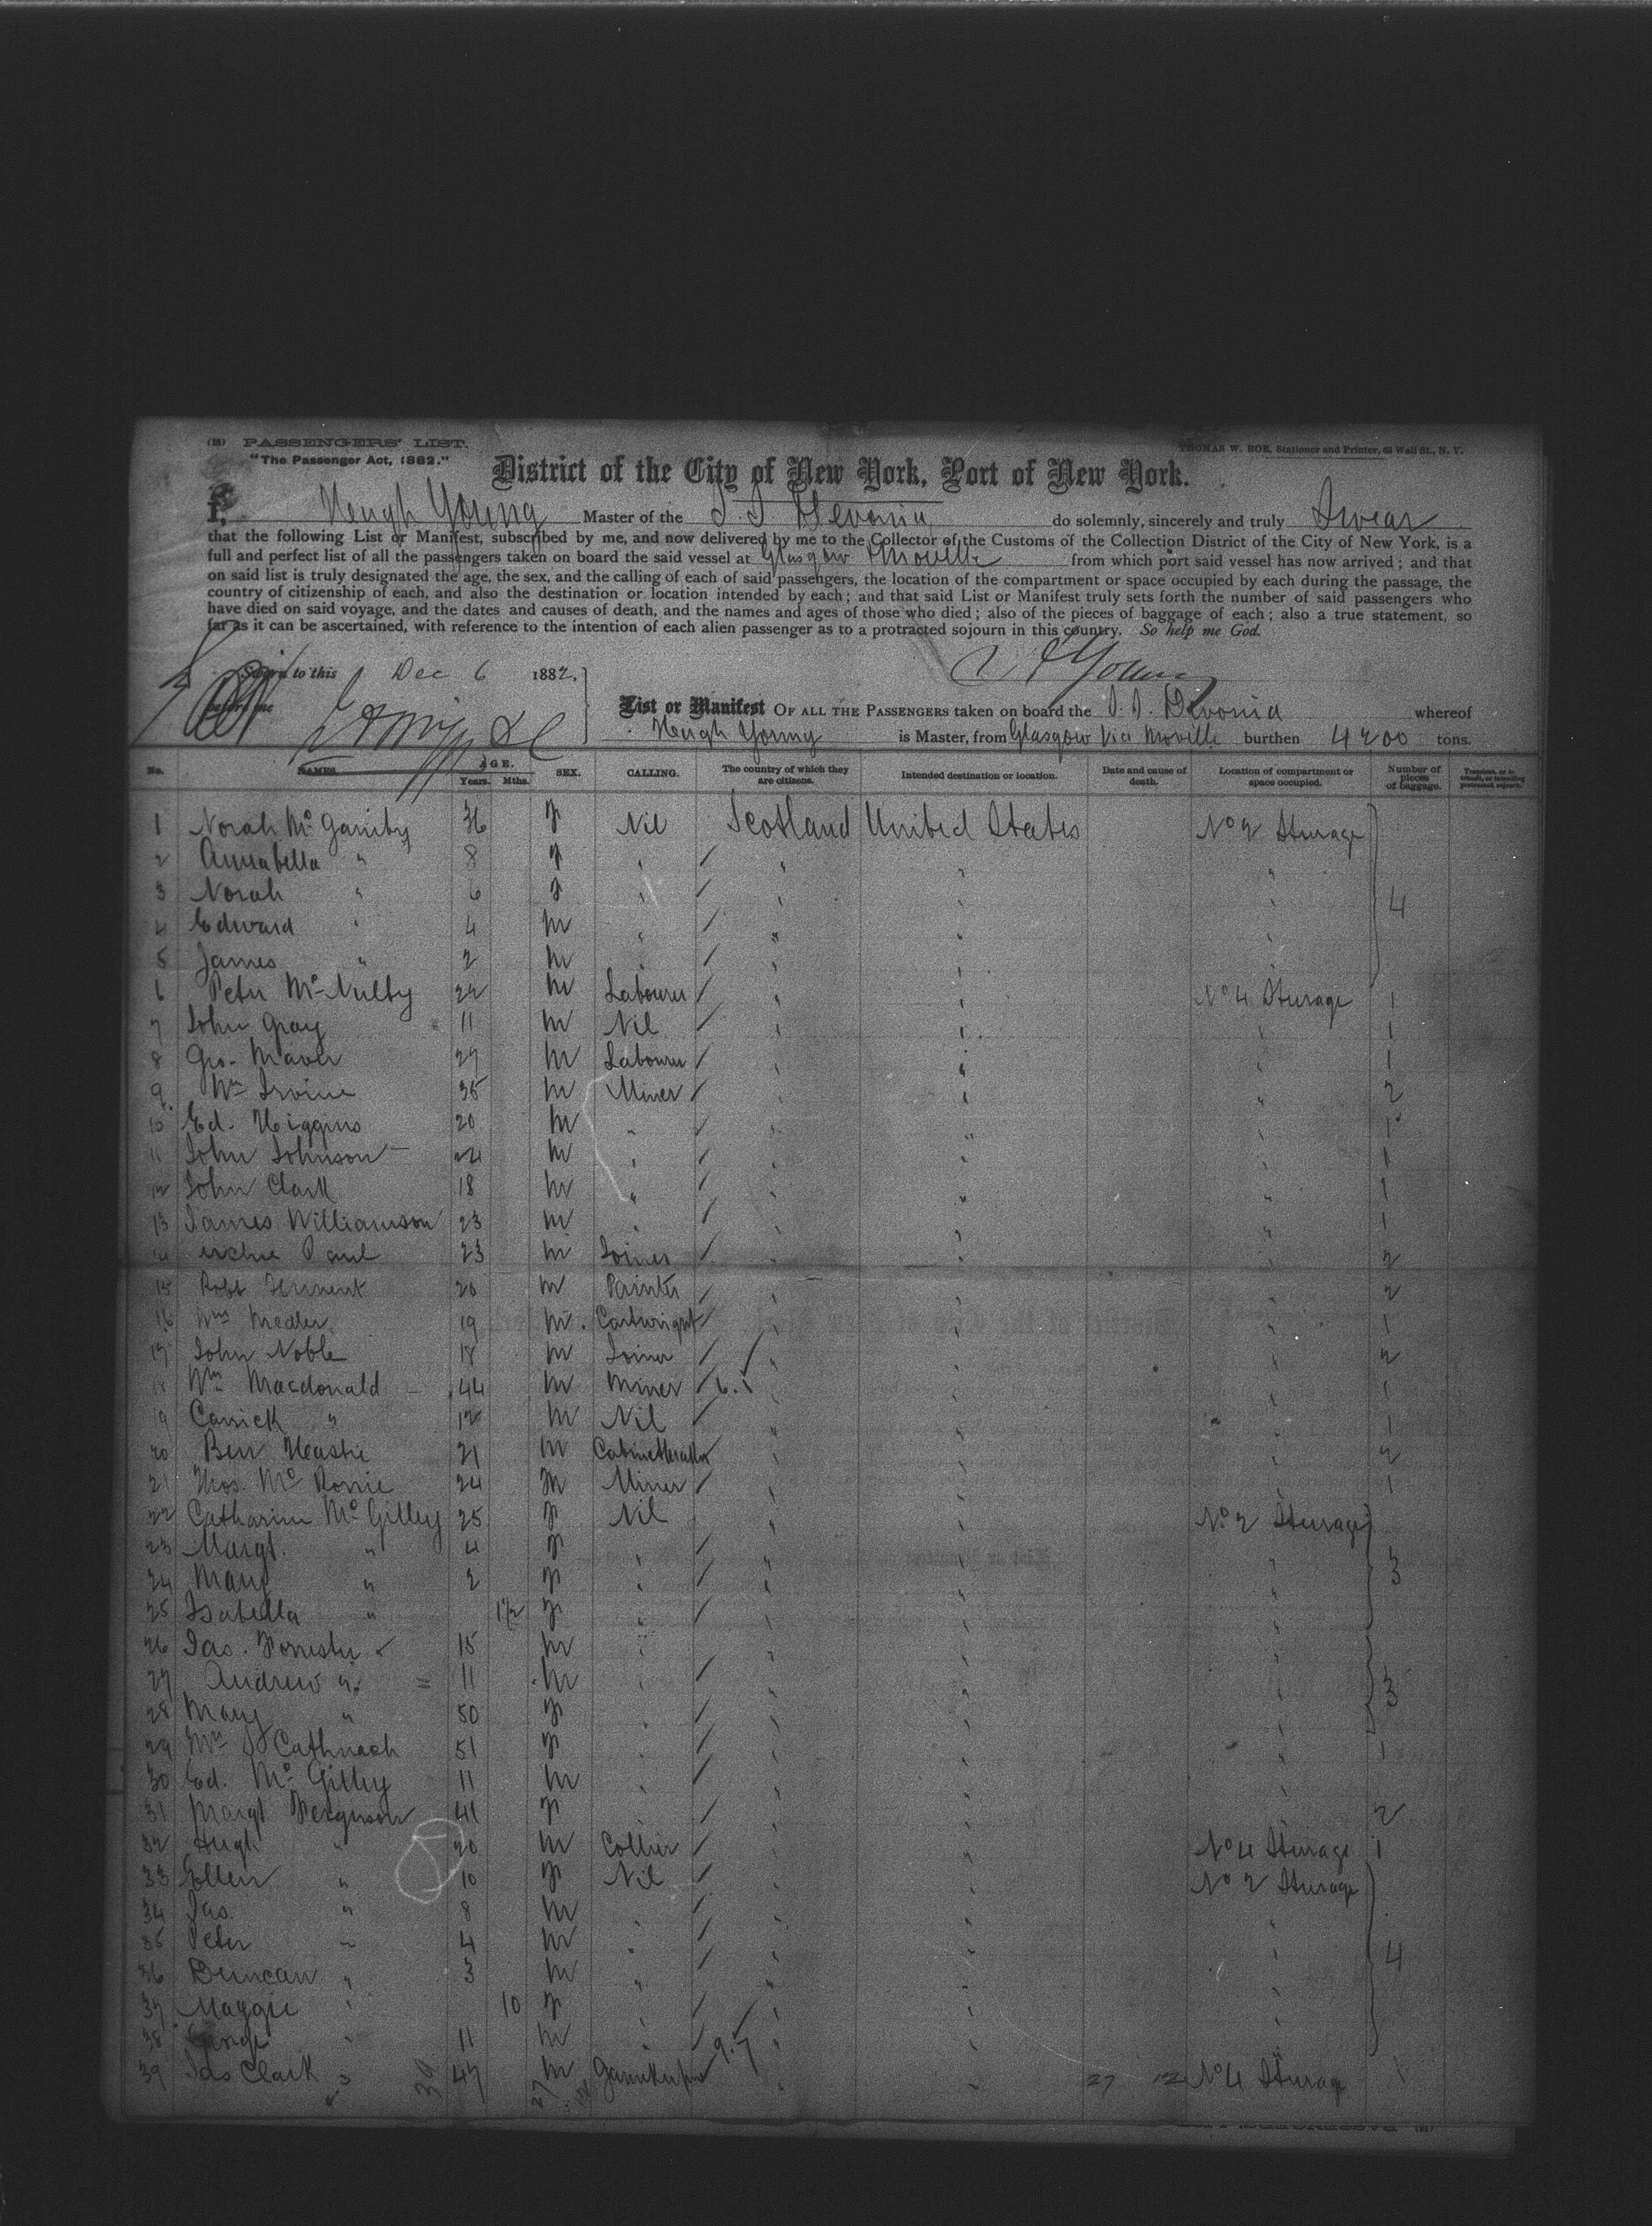 (18) PASSENGERS' LIST.
"The Passenger Act, 1882."
THOMAS W. ROE, Stationer and Printer, Wall St., N. Y.
District of the City of New York, Port of New York.
I, Hugh Young Master of the S.S. Devonia do solemnly, sincerely and truly Swear
that the following List or Manifest, subscribed by me, and now delivered by me to the Collector of the Customs of the Collection District of the City of New York, is a
full and perfect list of all the passengers taken on board the said vessel at Glasgow & Moville from which port said vessel has now arrived; and that
on said list is truly designated the age, the sex, and the calling of each of said passengers, the location of the compartment or space occupied by each during the passage, the
country of citizenship of each, and also the destination or location intended by each; and that said List or Manifest truly sets forth the number of said passengers who
have died on said voyage, and the dates and causes of death, and the names and ages of those who died; also of the pieces of baggage of each; also a true statement, so
far as it can be ascertained, with reference to the intention of each alien passenger as to a protracted sojourn in this country. So help me God.
Sworn to this Dec 6 1882,
H Young
before me
List or Manifest OF ALL THE PASSENGERS taken on board the S.S. Devonia whereof
Hugh Young is Master, from Glasgow via Moville burthen 4200 tons.
No. NAMES. AGE. Years. Mths. SEX. CALLING. The country of which they are citizens. Intended destination or location. Date and cause of death. Location of compartment or space occupied. Number of pieces of baggage.
1 Norah Mc 36 F Nil Scotland United States No 2 Sturage
2 Annabella " 8 F " " " "
3 Norah " 6 F " " " " 4
4 Edward " 4 M " " " "
5 James " 2 M " " " "
6 Peter McNulty 22 M Labourer " " No 4 Sturage 1
7 John Gray 11 M Nil " " " 1
8 Geo. Maver 27 M Labourer " " " 1
9 Wm Irvine 35 M Miner " " " 2
10 Ed. Higgins 20 M " " " " 1
11 John Johnson 24 M " " " " 1
12 John Clark 18 M " " " " 1
13 James Williamson 23 M " " " " 1
14 Archie Paul 23 M Joiner " " " 2
15 Robt Tennent 20 M Painter " " " 2
16 Wm 19 M Cartwright " " " 1
17 John Noble 18 M Joiner " " " 2
18 Wm Macdonald 44 M Miner " " " 1
19 Carrick " 12 M Nil " " " 1
20 Ben Hastie 21 M Cabinetmaker " " " 2
21 Thos. Mc Rorie 24 M Miner " " " 1
22 Catharine McGilley 25 F Nil " " No 2 Sturage
23 Margt. " 4 F " " " "
24 Mary " 2 F " " " " 3
25 Isabella " 1/2 F " " " "
26 Jas. Forrester 15 M " " " "
27 Andrew " 11 M " " " " 3
28 Mary " 50 F " " " "
29 Mrs 51 F " " " " 1
30 Ed. McGilley 11 M " " " "
31 Margt Ferguson 41 F " " " " 2
32 Hugh " 20 M Collier " " No 4 Sturage 1
33 Ellen " 10 F Nil " " No 2 Sturage
34 Jas. " 8 M " " " "
35 Peter " 4 M " " " " 4
36 Duncan " 3 M " " " "
37 Maggie " 10 F " " " "
38 George " 11 M " " " "
39 Jas Clark 47 M " " 27 12 No 4 Sturage 1